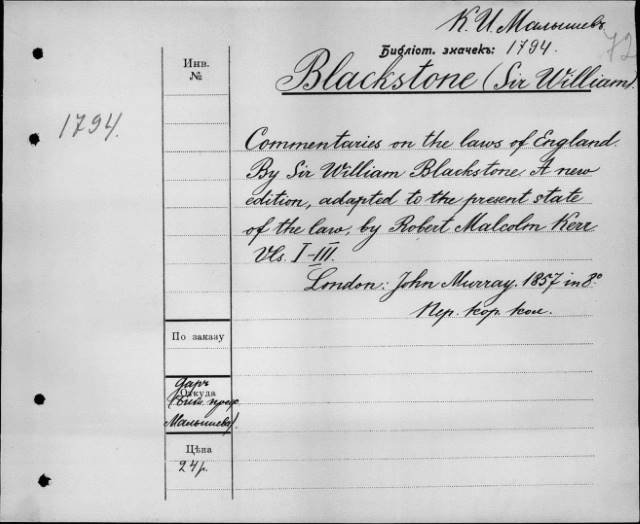 К. И. Малышевъ
72
Библіот. значекъ: 1794.
Blackstone (Sir William).
Инв.
№
1794.
Commentaries on the laws of England.
By Sir William Blackstone. A new
edition, adapted to the present state
of the law, by Robert Malcolm Kerr.
Vls. I-III.
London: John Murray. 1857 in 8°.
Пер. кор. кол.
По заказу
даръ
Откуда
Малышева).
Цѣна
24 р.